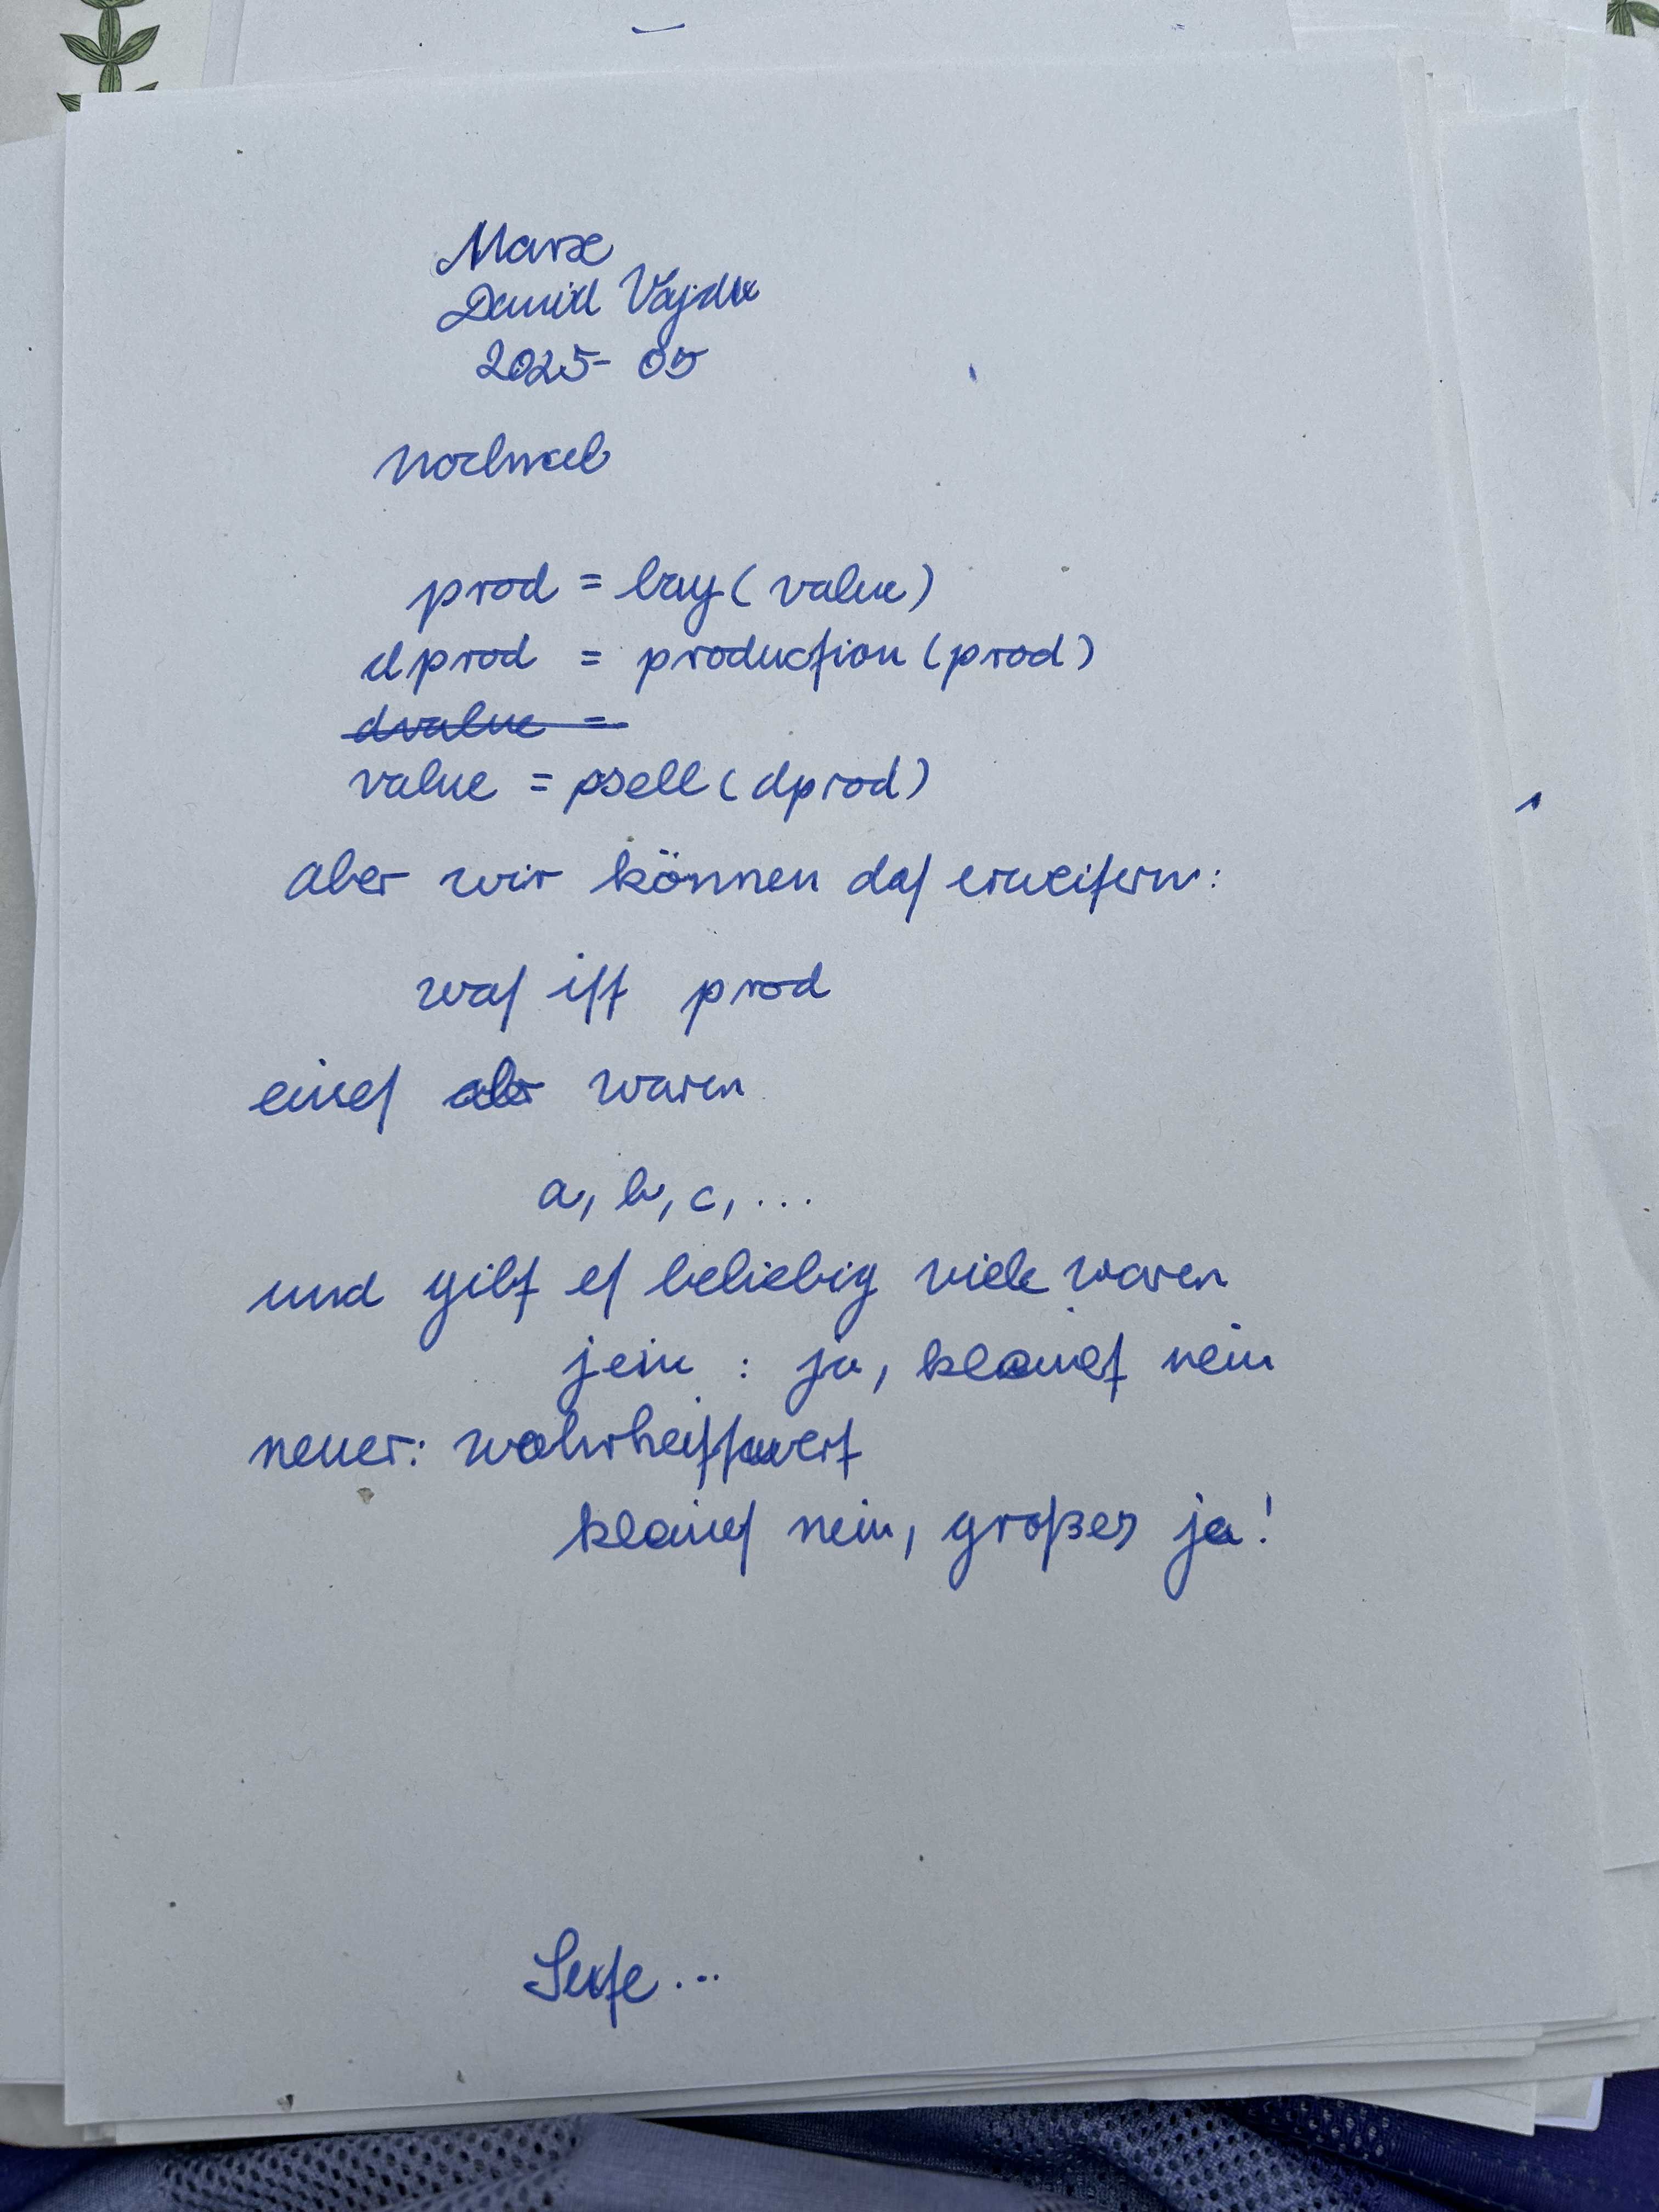 Marx
Daniel Vajda
2025-05
Nochmal
prod = buy(value)
dprod = production(prod)
dvalue =
value = psell(dprod)
aber wir können das erweitern:
was ist prod
eines aber waren
a, b, c, ...
und gibt es beliebig viele waren
jein : ja, kleines nein
neuer: wahrheitswert
kleines nein, großes ja!
Seife...